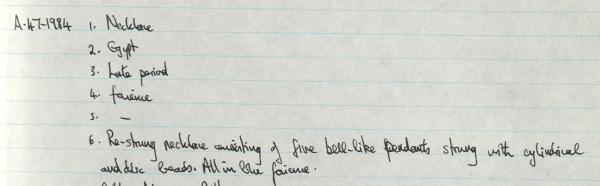 A.47-1984 1. Necklace
2. Egypt
3. Late period
4. faience
5. —
6. Re-strung necklace consisting of five bell-like pendants strung with cylindrical
and disc beads. All in blue faience.